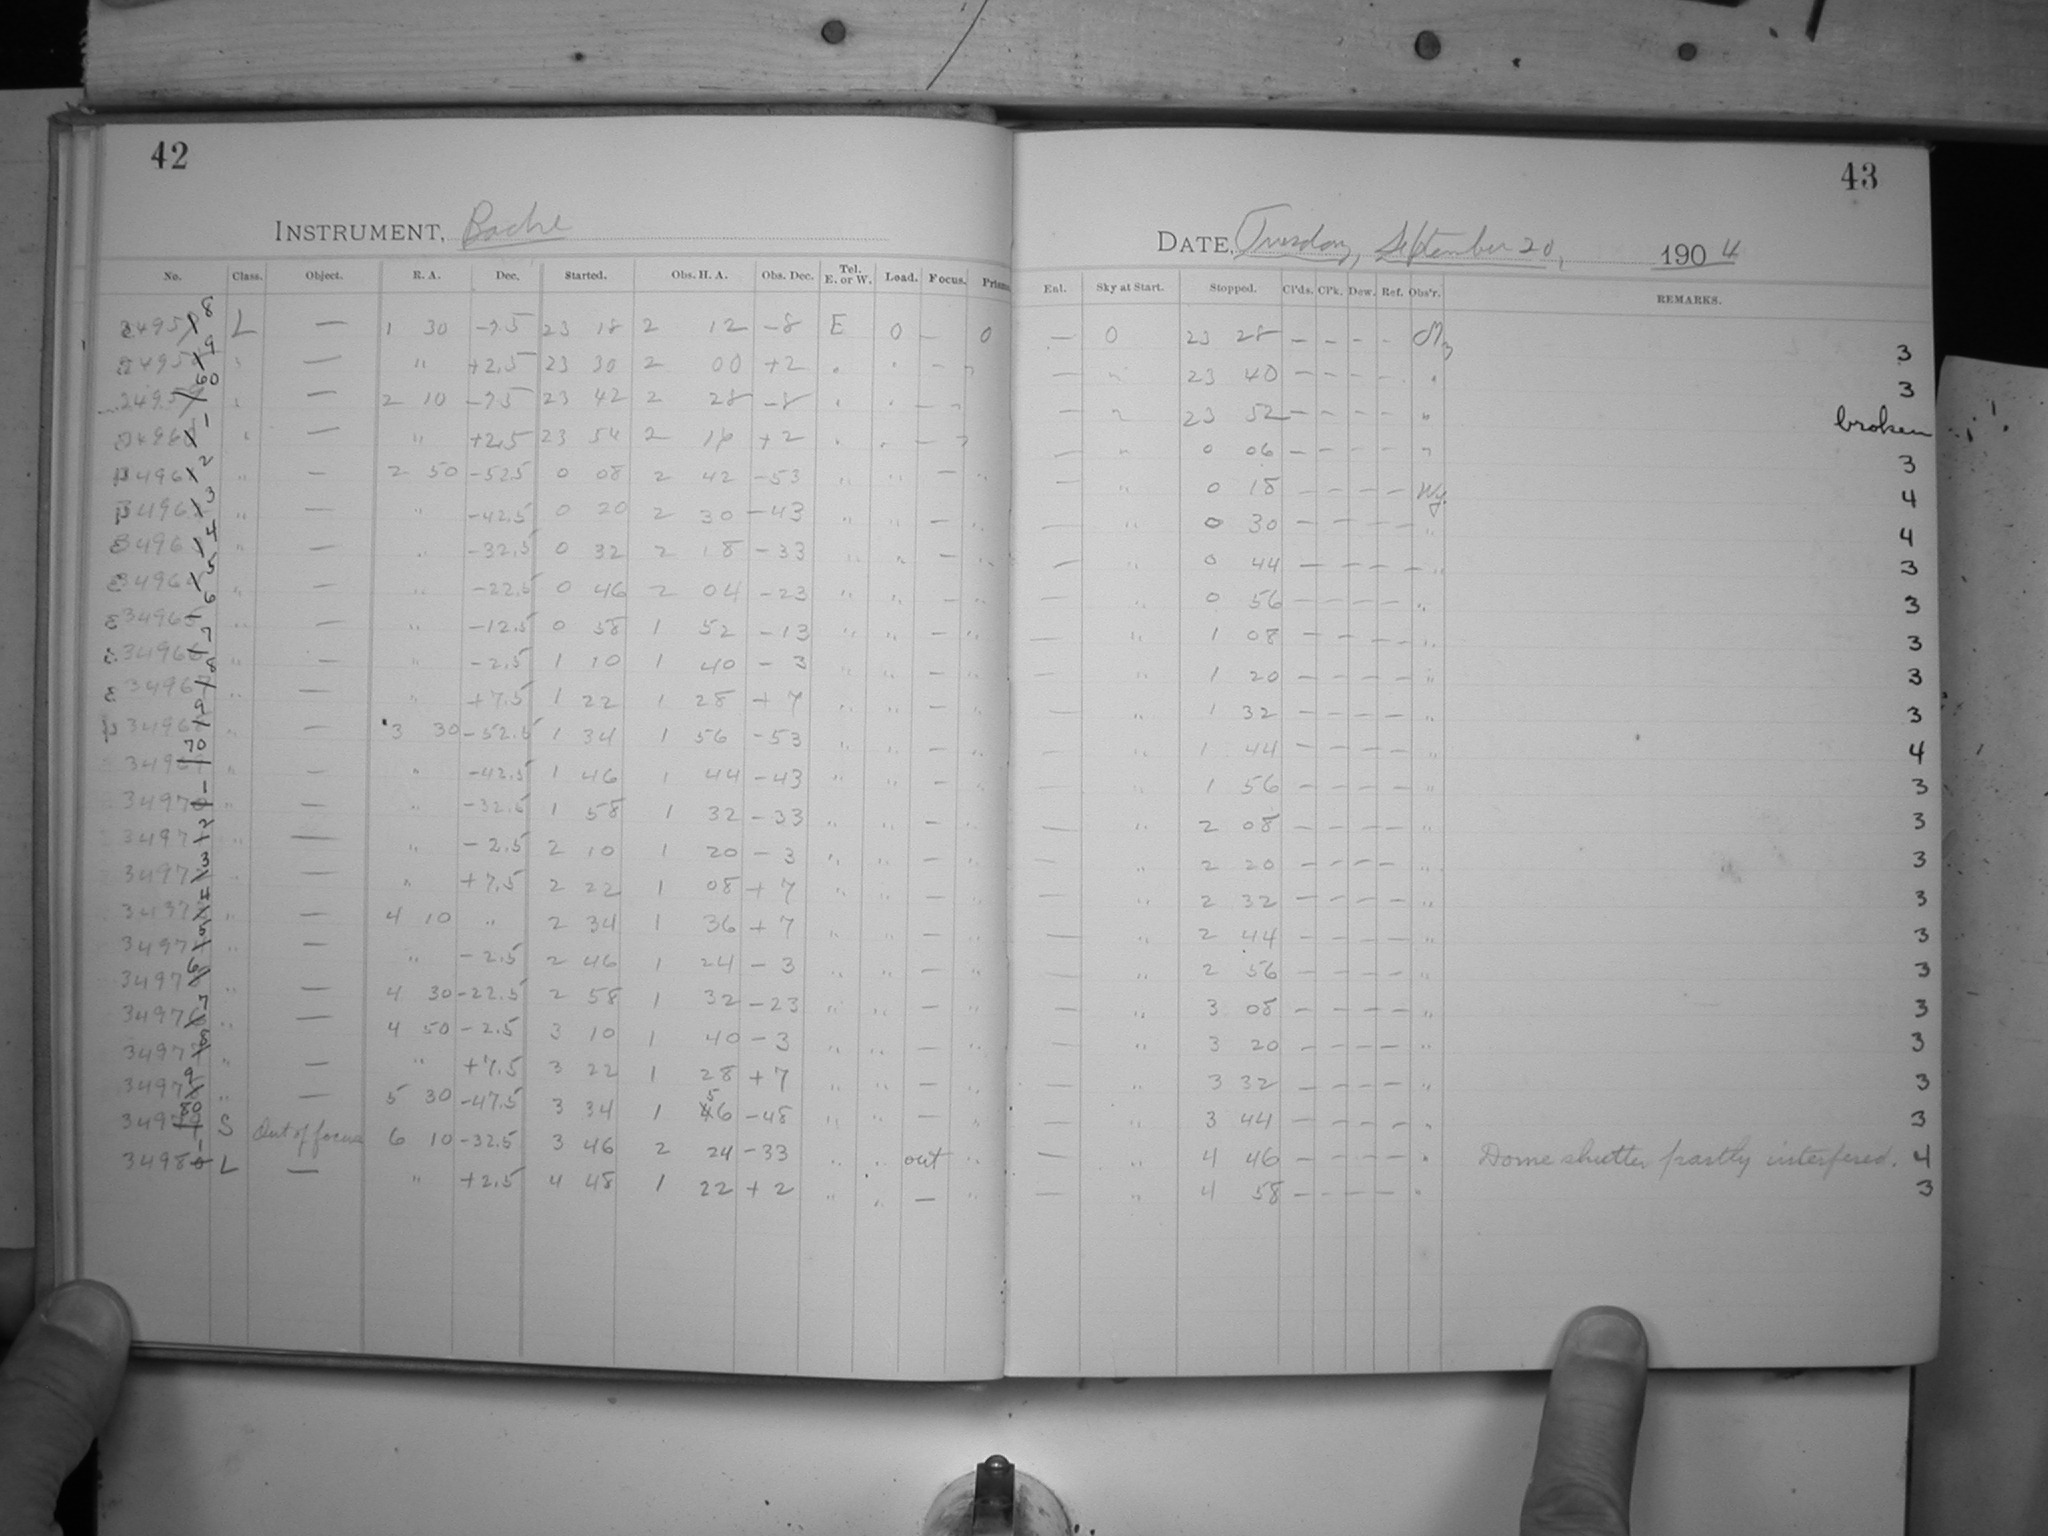 42
INSTRUMENT, Bache
No. Class. Object. R. A. Dec. Started. Obs. H. A. Obs. Dec. Tel. E. or W. Load. Focus. Prism.
L — 1 30 -7.5 23 18 2 12 -8 E 0 — 0
— " +2.5 23 30 2 00 +2 —
— 2 10 -7.5 23 42 2 28 -8 —
— " +2.5 23 54 2 16 +2 —
" — 2 50 -52.5 0 08 2 42 -53 " " — "
" — " -42.5 0 20 2 30 -43 " " — "
" — " -32.5 0 32 2 18 -33 " " — "
" — " -22.5 0 46 2 04 -23 " " — "
34965 6 " — " -12.5 0 58 1 52 -13 " " — "
34966 7 " — " -2.5 1 10 1 40 -3 " " — "
34967 8 " — " +7.5 1 22 1 28 +7 " " — "
34968 9 " — 3 30 -52.5 1 34 1 56 -53 " " — "
34969 70 " — " -42.5 1 46 1 44 -43 " " — "
34970 1 " — " -32.5 1 58 1 32 -33 " " — "
34971 2 " — " -2.5 2 10 1 20 -3 " " — "
34972 3 " — " +7.5 2 22 1 08 +7 " " — "
34973 4 " — 4 10 " 2 34 1 36 +7 " " — "
34974 5 " — " -2.5 2 46 1 24 -3 " " — "
34975 6 " — 4 30 -22.5 2 58 1 32 -23 " " — "
34976 7 " — 4 50 -2.5 3 10 1 40 -3 " " — "
34977 8 " — " +7.5 3 22 1 28 +7 " " — "
34978 9 " — 5 30 -47.5 3 34 1 56 -48 " " — "
34979 80 S Out of focus 6 10 -32.5 3 46 2 24 -33 " " out "
34980 1 L — " +2.5 4 48 1 22 +2 " " — "
43
DATE, Tuesday, September 20, 1904
Enl. Sky at Start. Stopped. Cl'ds. Cl'k. Dew. Ref. Obs'r. REMARKS.
— 0 23 28 — — — — 3
— " 23 40 — — — — " 3
— " 23 52 — — — — " broken
— " 0 06 — — — — " 3
— " 0 18 — — — — Wy. 4
— " 0 30 — — — — " 4
— " 0 44 — — — — " 3
— " 0 56 — — — — " 3
— " 1 08 — — — — " 3
— " 1 20 — — — — " 3
— " 1 32 — — — — " 3
— " 1 44 — — — — " 4
— " 1 56 — — — — " 3
— " 2 08 — — — — " 3
— " 2 20 — — — — " 3
— " 2 32 — — — — " 3
— " 2 44 — — — — " 3
— " 2 56 — — — — " 3
— " 3 08 — — — — " 3
— " 3 20 — — — — " 3
— " 3 32 — — — — " 3
— " 3 44 — — — — " 3
— " 4 46 — — — — " Dome shutter partly interfered. 4
— " 4 58 — — — — " 3